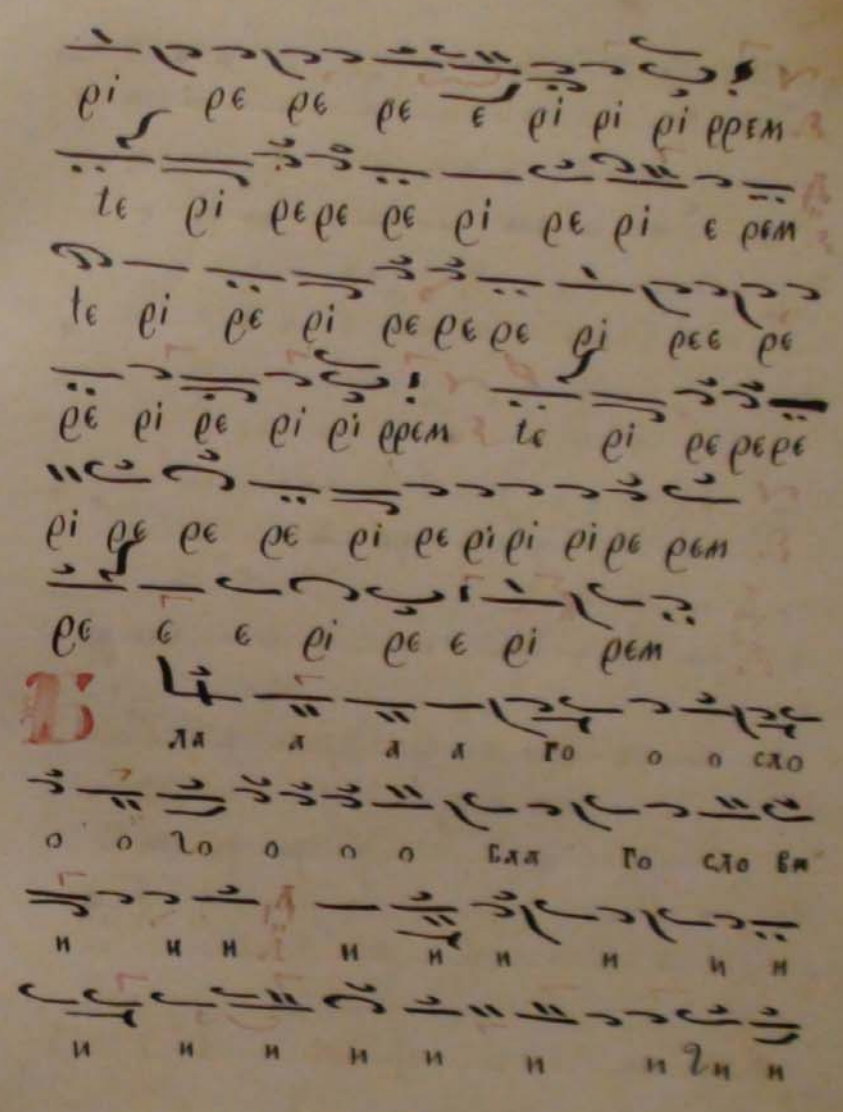 ρι ρε ρε ρε ε ρι ρι ρι ρρεμ
τε ρι ρε ρε ρε ρι ρε ρι ε ρεμ
τε ρι ρε ρι ρε ρε ρε ρι ρεε ρε
ρε ρι ρε ρι ρι ρρεμ τε ρι ρε ρε ρε
ρι ρε ρε ρε ρι ρε ρι ρι ρι ρε ρεμ
ρε ε ε ρι ρε ε ρι ρεμ
Б ла а а а го о о сло
о о го о о о бла го сло ви
и и и и и и и и и
и и и и и и и ги и